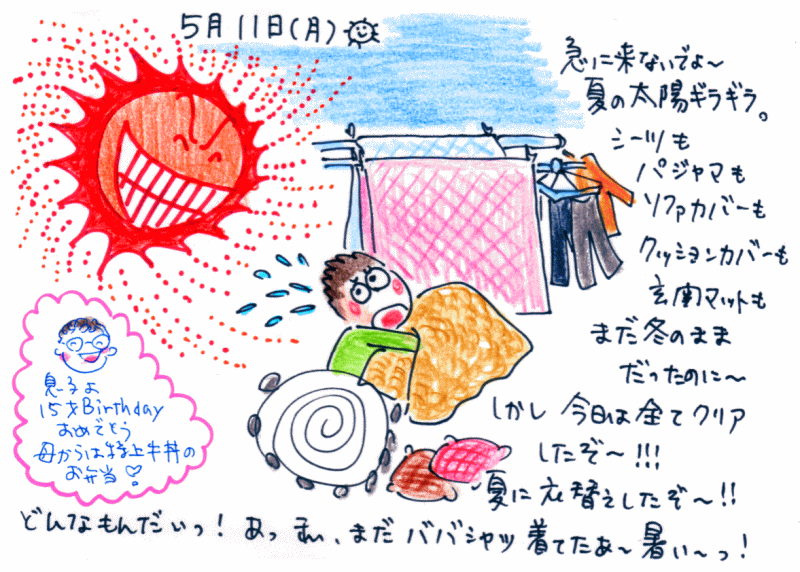 5月11日(月)
急に来ないでよ〜
夏の太陽ギラギラ。
シーツも
パジャマも
ソファカバーも
クッションカバーも
玄関マットも
まだ冬のまま
だったのに〜
しかし 今日は全てクリア
したぞ〜!!!
夏に衣替えしたぞ〜!!
どんなもんだいっ!あっまい、まだババシャツ着てたあ〜暑い〜っ!
息子よ
15才Birthday
おめでとう
母からは特上牛丼の
お弁当♡